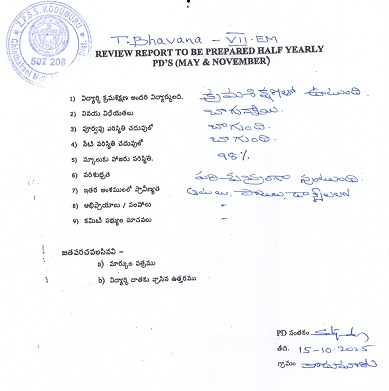 Z.P.S.S. KODUNURU
507 208
T. Bhavana - VII - EM
REVIEW REPORT TO BE PREPARED HALF YEARLY
PD'S (MAY & NOVEMBER)
1) విద్యార్థి క్రమశిక్షణ అందరి విద్యార్థులంది. క్రమశిక్షణలో ఉంటుంది.
2) వినయ విధేయతలు బాగున్నాయి
3) పూర్వపు పరిస్థితి చదువులో బాగుంది.
4) నేటి పరిస్థితి చదువులో బాగుంది.
5) స్కూలుకు హాజరు పరిస్థితి. 98%
6) పరిశుభ్రత పరిశుభ్రంగా వుంటుంది.
7) ఇతర అంశములలో ప్రావీణ్యత ఆటలు, పాటలు,
8) అభిప్రాయాలు / సలహాలు -
9) కమిటీ సభ్యుల సూచనలు -
జతపరచవలసినవి -
a) మార్కుల పత్రము
b) విద్యార్థి దాతకు వ్రాసిన ఉత్తరము
PD సంతకం
తేది. 15-10-2025
గ్రామం